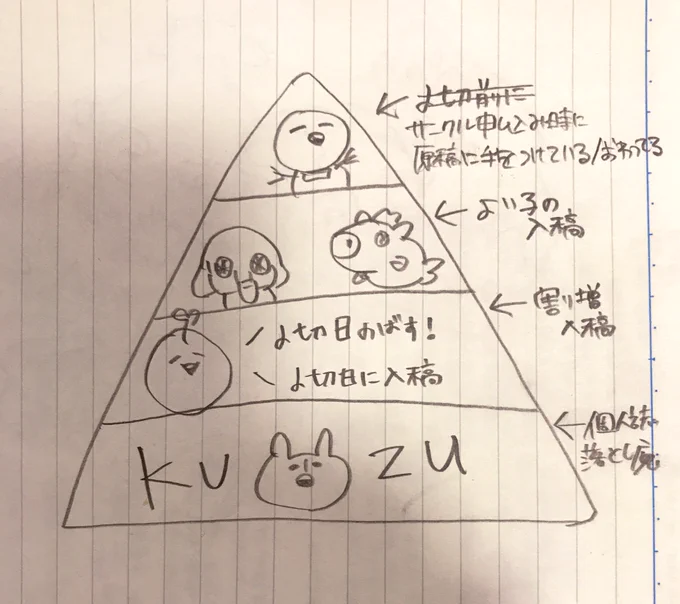 〆切前に
サークル申し込み時に
原稿に手をつけている/おわってる
よい子の
入稿
割り増
入稿
〆切日のばす!
〆切日に入稿
個人誌
落とし
KU ZU